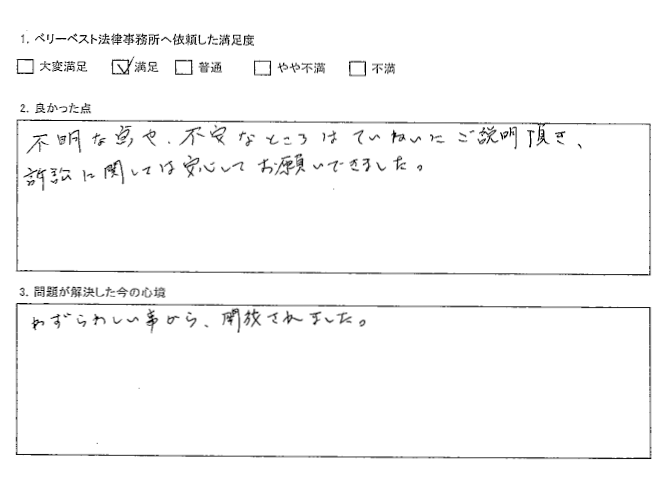 1. ベリーベスト法律事務所へ依頼した満足度
□ 大変満足 ☑ 満足 □ 普通 □ やや不満 □ 不満
2. 良かった点
不明な点や、不安なところはていねいにご説明頂き、
訴訟に関しては安心してお願いできました。
3. 問題が解決した今の心境
わずらわしい事から、開放されました。